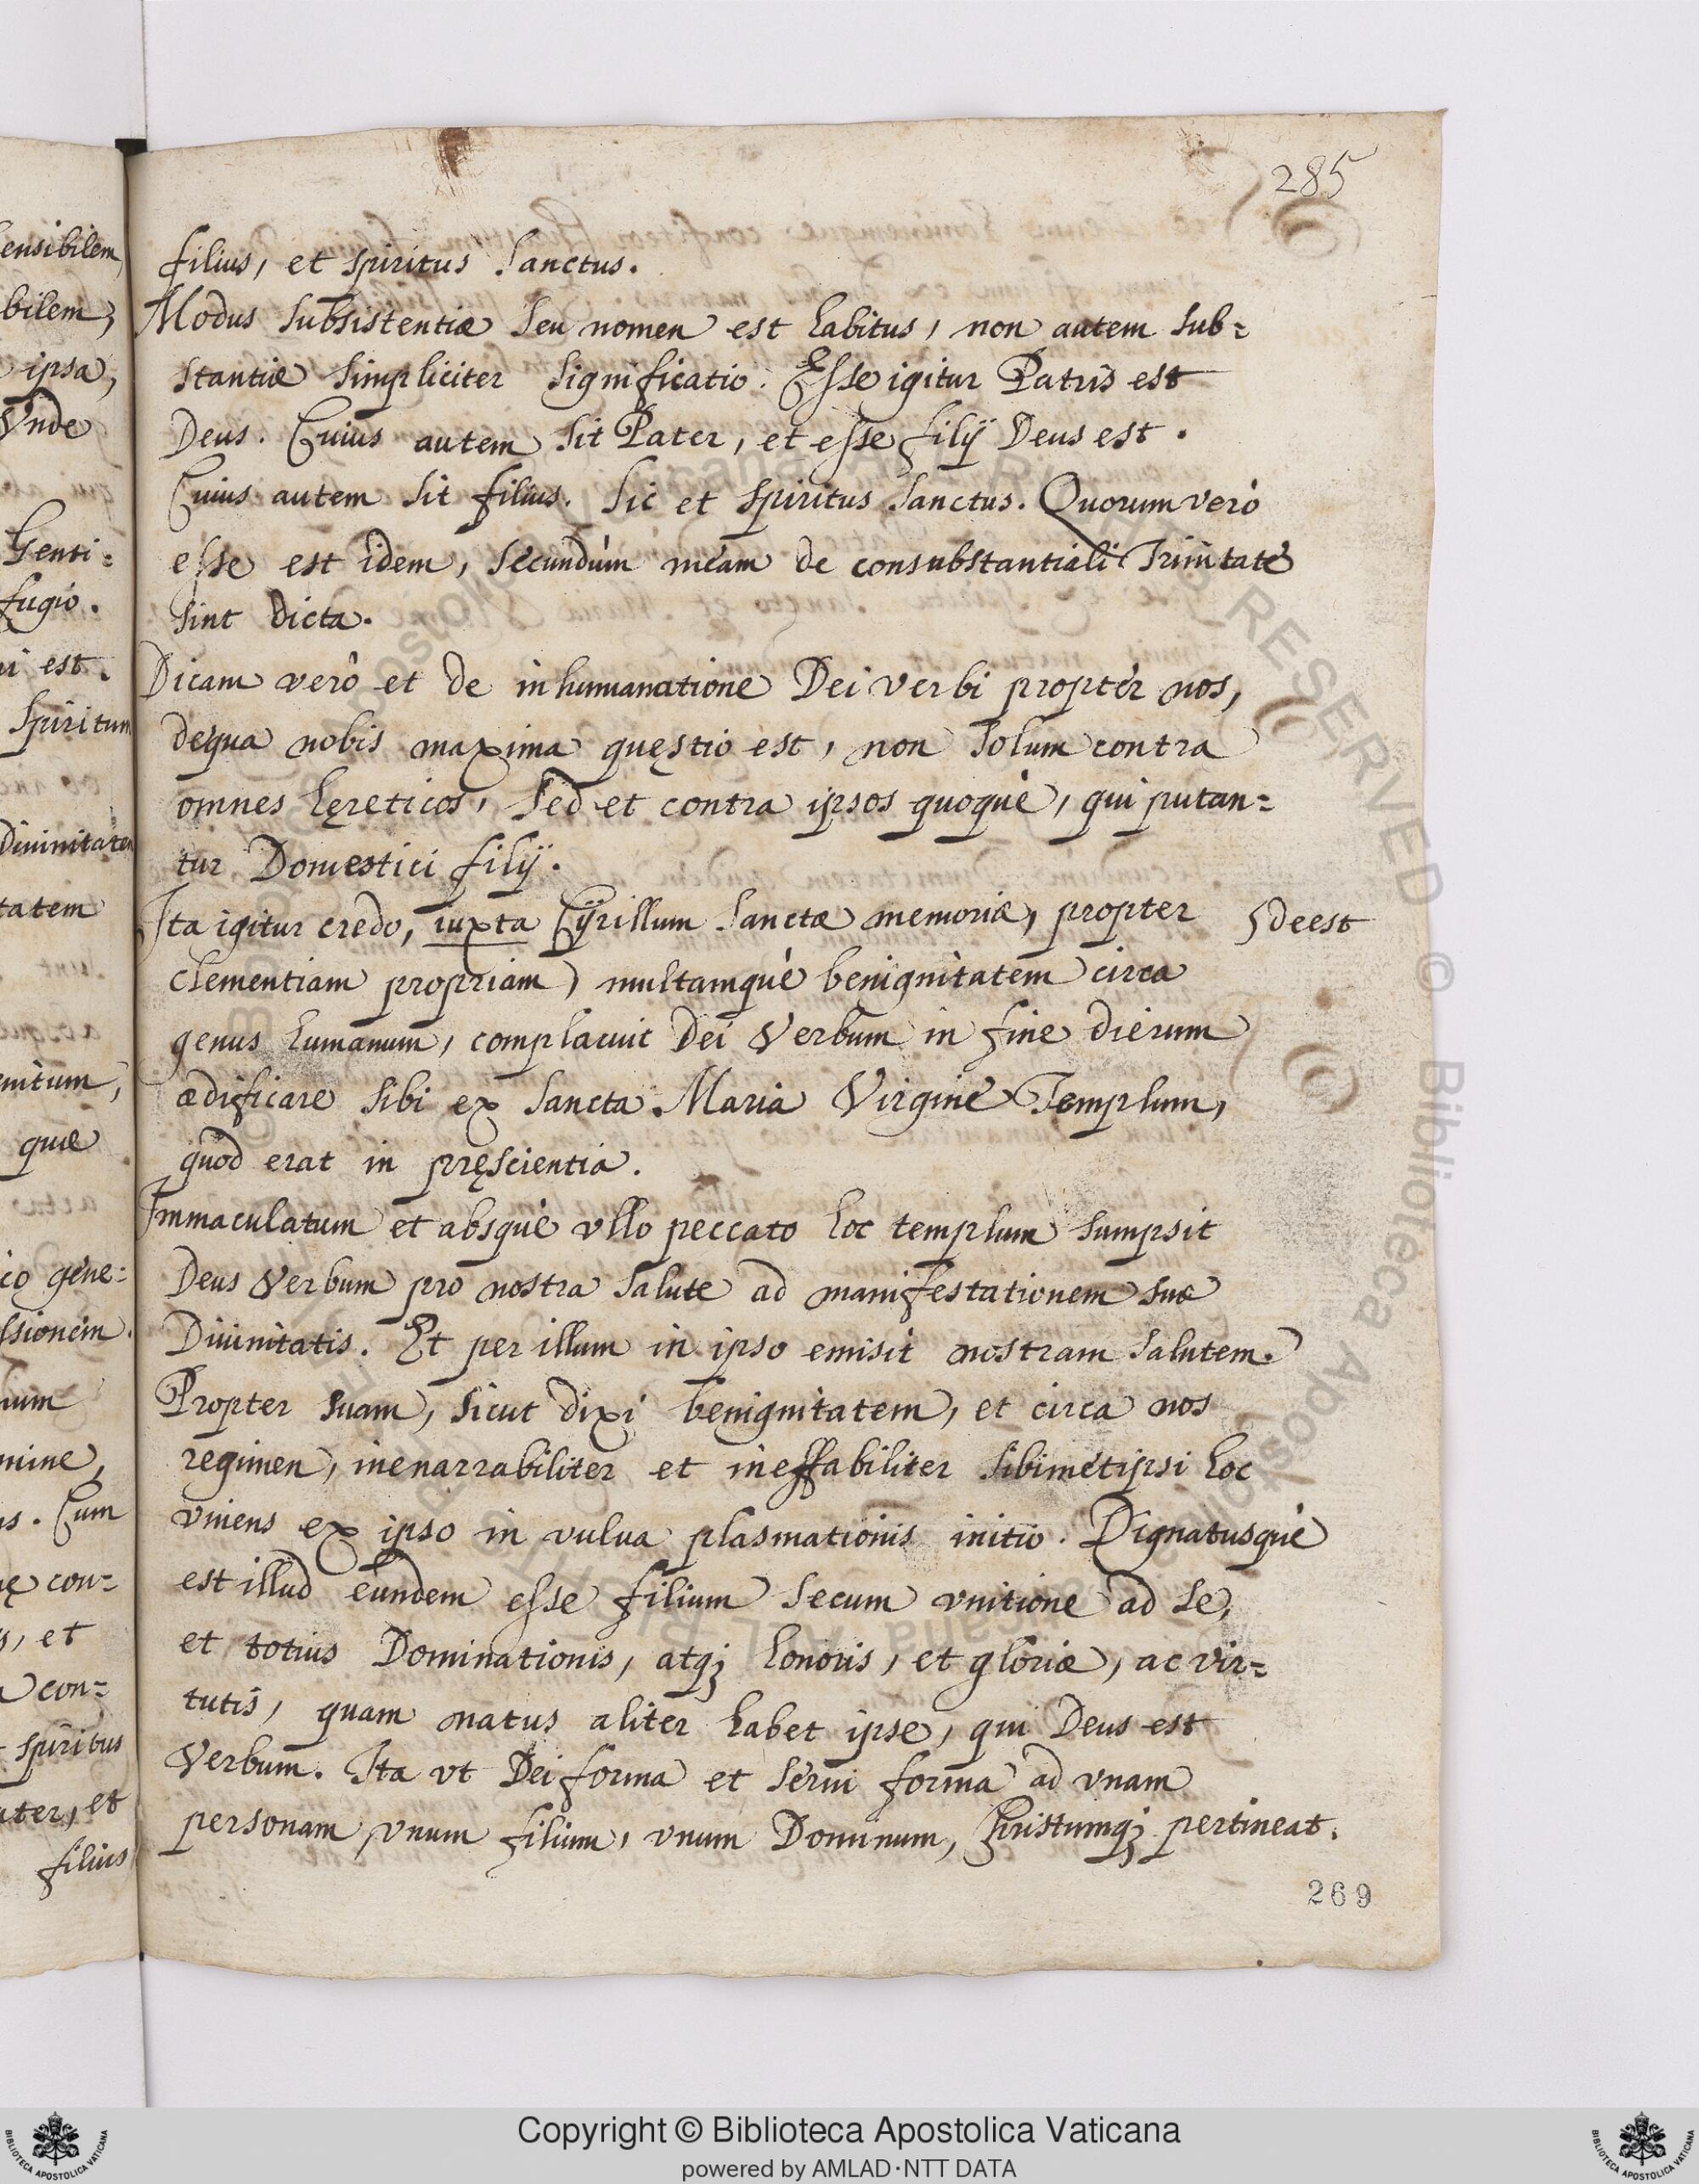 285
filius, et spiritus sanctus.
Modus subsistentiæ seu nomen est habitus, non autem sub=
stantiæ simpliciter significatio. Esse igitur Patris est
Deus. Cuius autem sit Pater, et esse filij Deus est.
Cuius autem sit filius. sic et spiritus sanctus. Quorum verò
esse est idem, secundùm meam de consubstantiali Trinitate
sint dicta.
Dicam verò et de inhumanatione Dei verbi propter nos,
dequa nobis maxima quęstio est, non solum contra
omnes hęreticos, sed et contra ipsos quoquè, qui putan=
tur Domestici filij.
Ita igitur credo, iuxta Cyrillum sanctæ memoriæ, propter
deest
clementiam propriam, multamquè benignitatem circa
genus humanum, complacuit Dei Verbum in fine dierum
ædificare sibi ex sancta Maria Virgine Templum,
quod erat in pręscientia.
Immaculatum et absquè vllo peccato hoc templum sumpsit
Deus Verbum pro nostra salute ad manifestationem suæ
Diuinitatis. Et per illum in ipso emisit nostram salutem.
Propter suam, sicut dixi benignitatem, et circa nos
regimen, inenarrabiliter et ineffabiliter sibimetipsi hoc
vniens ex ipso in vulua plasmationis initio. Dignatusquè
est illud eundem esse filium secum vnitione ad se,
et totius Dominationis, atq; honoris, et gloriæ, ac vir=
tutis, quam natus aliter habet ipse, qui Deus est
Verbum. Ita vt Dei forma et serui forma ad vnam
personam vnum filium, vnum Dominum, Christumq; pertineat.
269
ensibilem,
bilem,
ipsa,
Vnde
Genti=
fugio.
est.
spiritum
Diuinitatem
tatem
quæ
gene=
ssionem.
Cum
con=
et
con=
spiritus
et
filius
Copyright © Biblioteca Apostolica Vaticana
powered by AMLAD·NTT DATA